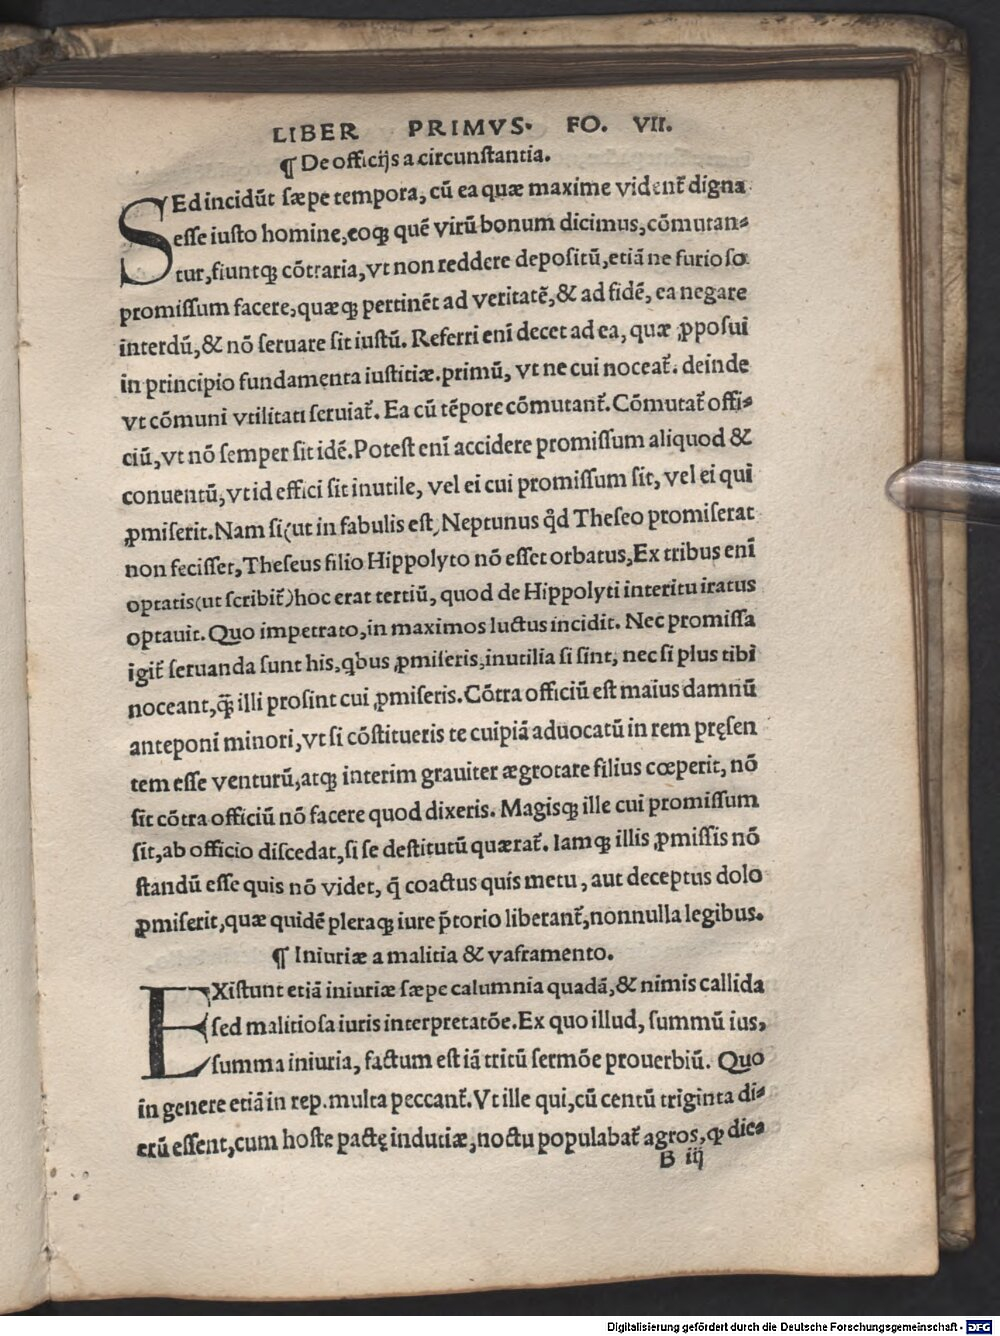 LIBER PRIMVS. FO. VII.
¶ De officijs a circunstantia.
SEd incidũt sæpe tempora, cũ ea quæ maxime vident᷑ digna
esse iusto homine, eoqꝫ quẽ virũ bonum dicimus, cõmutan⸗
tur, fiuntqꝫ cõtraria, vt non reddere depositũ, etiã ne furioso
promissum facere, quæqꝫ pertinẽt ad veritatẽ, & ad fidẽ, ea negare
interdũ, & nõ seruare sit iustũ. Referri enĩ decet ad ea, quæ ꝓposui
in principio fundamenta iustitiæ. primũ, vt ne cui noceat᷑. deinde
vt cõmuni vtilitati seruiat᷑. Ea cũ tẽpore cõmutant᷑. Cõmutat᷑ offi⸗
ciũ, vt nõ semper sit idẽ. Potest enĩ accidere promissum aliquod &
conuentũ, vt id effici sit inutile, vel ei cui promissum sit, vel ei qui
ꝓmiserit. Nam si (ut in fabulis est) Neptunus qd̃ Theseo promiserat
non fecisset, Theseus filio Hippolyto nõ esset orbatus, Ex tribus enĩ
optatis (ut scribit᷑) hoc erat tertiũ, quod de Hippolyti interitu iratus
optauit. Quo impetrato, in maximos luctus incidit. Nec promissa
igit᷑ seruanda sunt his, qbus ꝓmiseris, inutilia si sint, nec si plus tibi
noceant, q̃ꝫ illi prosint cui ꝓmiseris. Cõtra officiũ est maius damnũ
anteponi minori, vt si cõstitueris te cuipiã aduocatũ in rem pręsen
tem esse venturũ, atqꝫ interim grauiter ægrotare filius cœperit, nõ
sit cõtra officiũ nõ facere quod dixeris. Magisqꝫ ille cui promissum
sit, ab officio discedat, si se destitutũ quærat᷑. Iamqꝫ illis ꝓmissis nõ
standũ esse quis nõ videt, q̃ coactus quis metu, aut deceptus dolo
ꝓmiserit, quæ quidẽ pleraqꝫ iure p̃torio liberant᷑, nonnulla legibus.
¶ Iniuriæ a malitia & vaframento.
EXistunt etiã iniuriæ sæpe calumnia quadã, & nimis callida
sed malitiosa iuris interpretatõe. Ex quo illud, summũ ius,
summa iniuria, factum est iã tritũ sermõe prouerbiũ. Quo
in genere etiã in rep. multa peccant᷑. Vt ille qui, cũ centũ triginta di⸗
erũ essent, cum hoste pactę indutiæ, noctu populabat᷑ agros, ꝙ die⸗
B iij
Digitalisierung gefördert durch die Deutsche Forschungsgemeinschaft - DFG